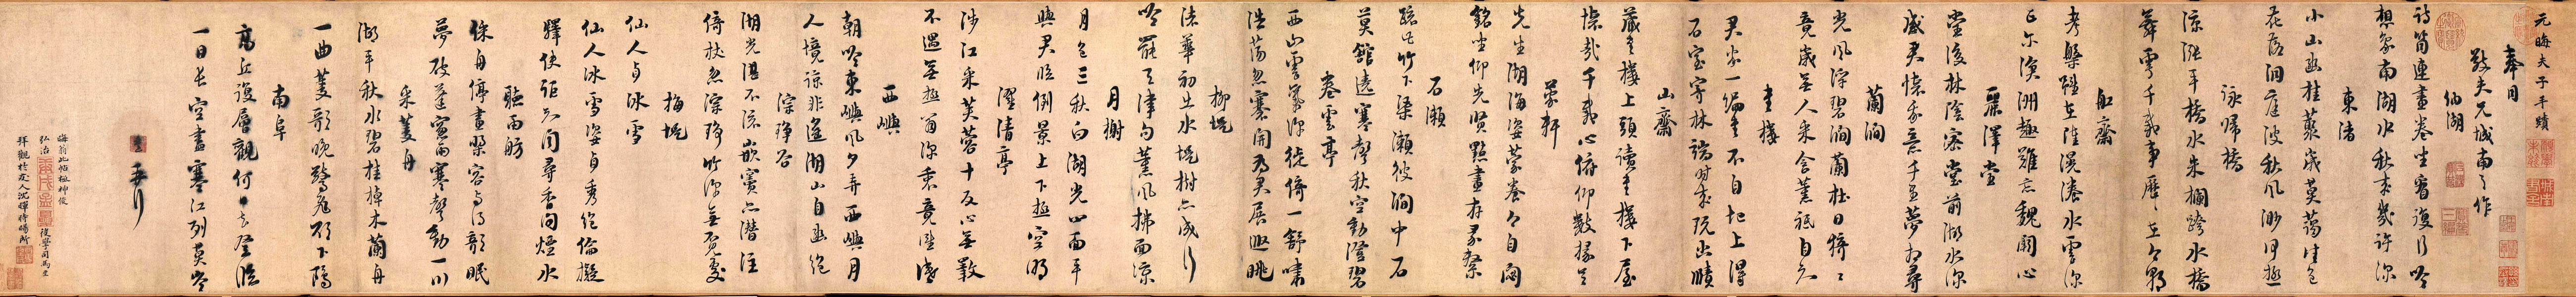 元晦夫子手蹟
奉同
敬夫兄城南之作
納湖
詩筒連畫卷坐看復行吟
想象南湖水秋來幾許深
東渚
小山幽桂叢歲莫藹佳色
花落洞庭波秋風渺何極
詠歸橋
綠漲平橋水朱欄跨水橋
舞雩千載事歷歷在今朝
船齋
考槃雖在陸滉瀁水雲深
正爾滄洲趣難忘魏闕心
麗澤堂
堂後林陰密堂前湖水深
感君懷我意千里夢相尋
蘭澗
光風浮碧澗蘭杜日猗猗
竟歲無人采含薰祇自知
書樓
君家一編書不自圯上得
石室寄林端時來玩幽賾
山齋
藏書樓上頭讀書樓下屋
懷哉千載心俯仰數椽足
蒙軒
先生湖海姿蒙養今自閟
銘坐仰先賢點畫存彖繫
石瀨
疏此竹下渠瀨彼澗中石
莫館遶寒聲秋空動澄碧
卷雲亭
西山雲氣深徙倚一舒嘯
浩蕩忽褰開為君展遐眺
柳堤
渚華初出水堤樹亦成行
吟罷天津句薰風拂面涼
月榭
月色三秋白湖光四面平
與君臨倒景上下極空明
濯清亭
涉江采芙蓉十反心無斁
不遇無極翁深衷竟誰識
西嶼
朝吟東嶼風夕弄西嶼月
人境諒非遙湖山自幽絕
淙琤谷
湖光湛不流嵌竇亦潛注
倚杖忽淙琤竹深無覓處
梅堤
仙人貞冰雪
仙人冰雪姿貞秀絕倫擬
驛使詎知聞尋香問煙水
聽雨舫
綵舟停畫槳容與得欹眠
夢破蓬窗雨寒聲動一川
采菱舟
湖平秋水碧桂棹木蘭舟
一曲菱歌晚驚飛欲下鷗
南阜
高丘復層觀何日去登臨
一目長空盡寒江列莫岑
熹